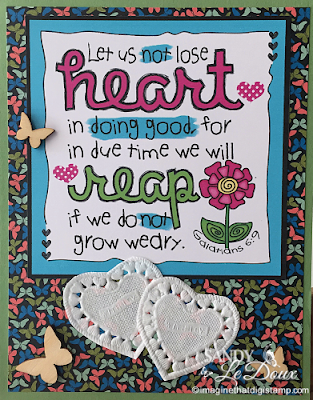 Let us not lose
heart
in doing good, for
in due time we will
reap
if we do not
grow weary.
Galatians 6:9
SANDY
Le Doux
©imaginethatdigistamp.com